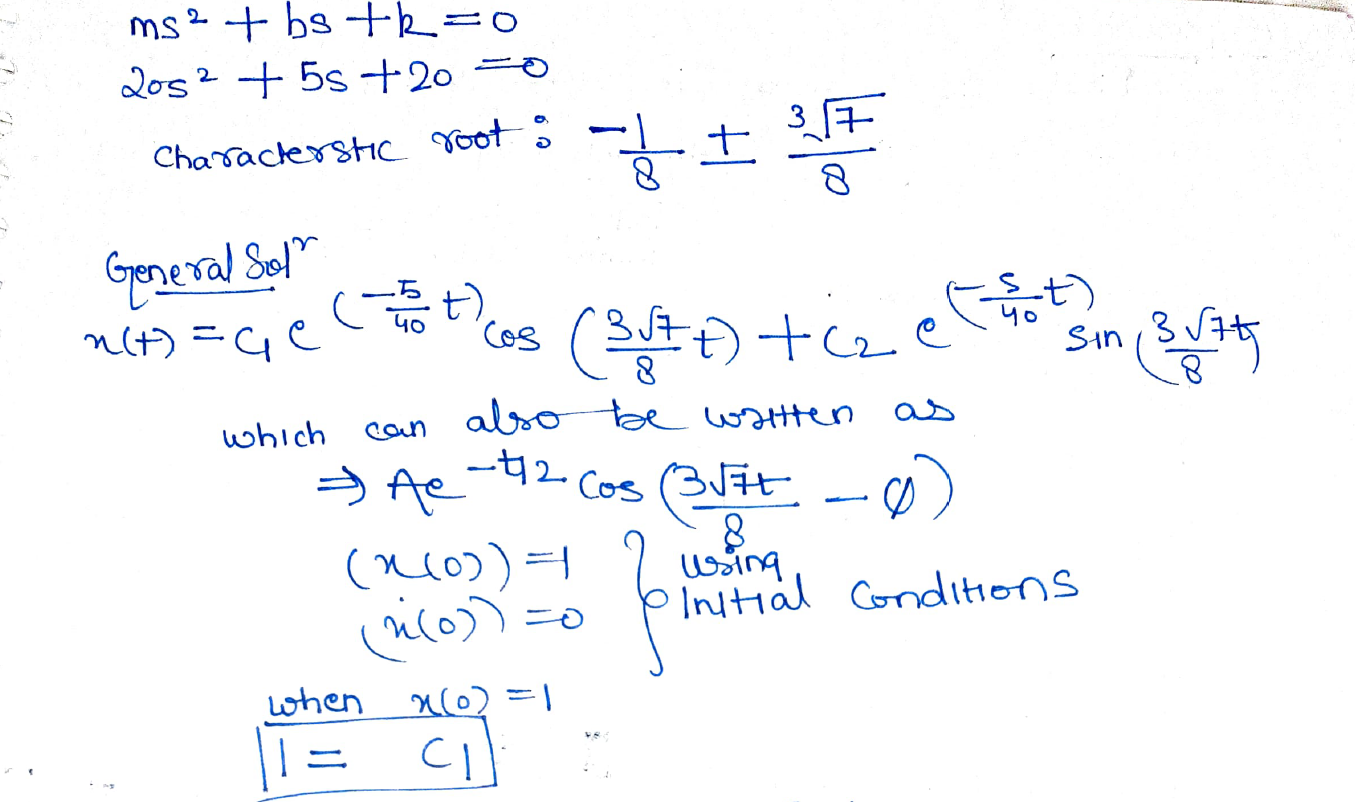 ms² + bs + k = 0
20s² + 5s + 20 = 0
characterstic root : -1/8 ± 3√7/8
General Solⁿ
x(t) = C₁ e^(-5/40 t) cos (3√7/8 t) + C₂ e^(-5/40 t) sin (3√7t/8)
which can also be written as
⇒ Ae^-t/2 cos (3√7t/8 - ø)
(x(0)) = 1 } using
(ẋ(0)) = 0 Initial Conditions
when x(0) = 1
1 = C1